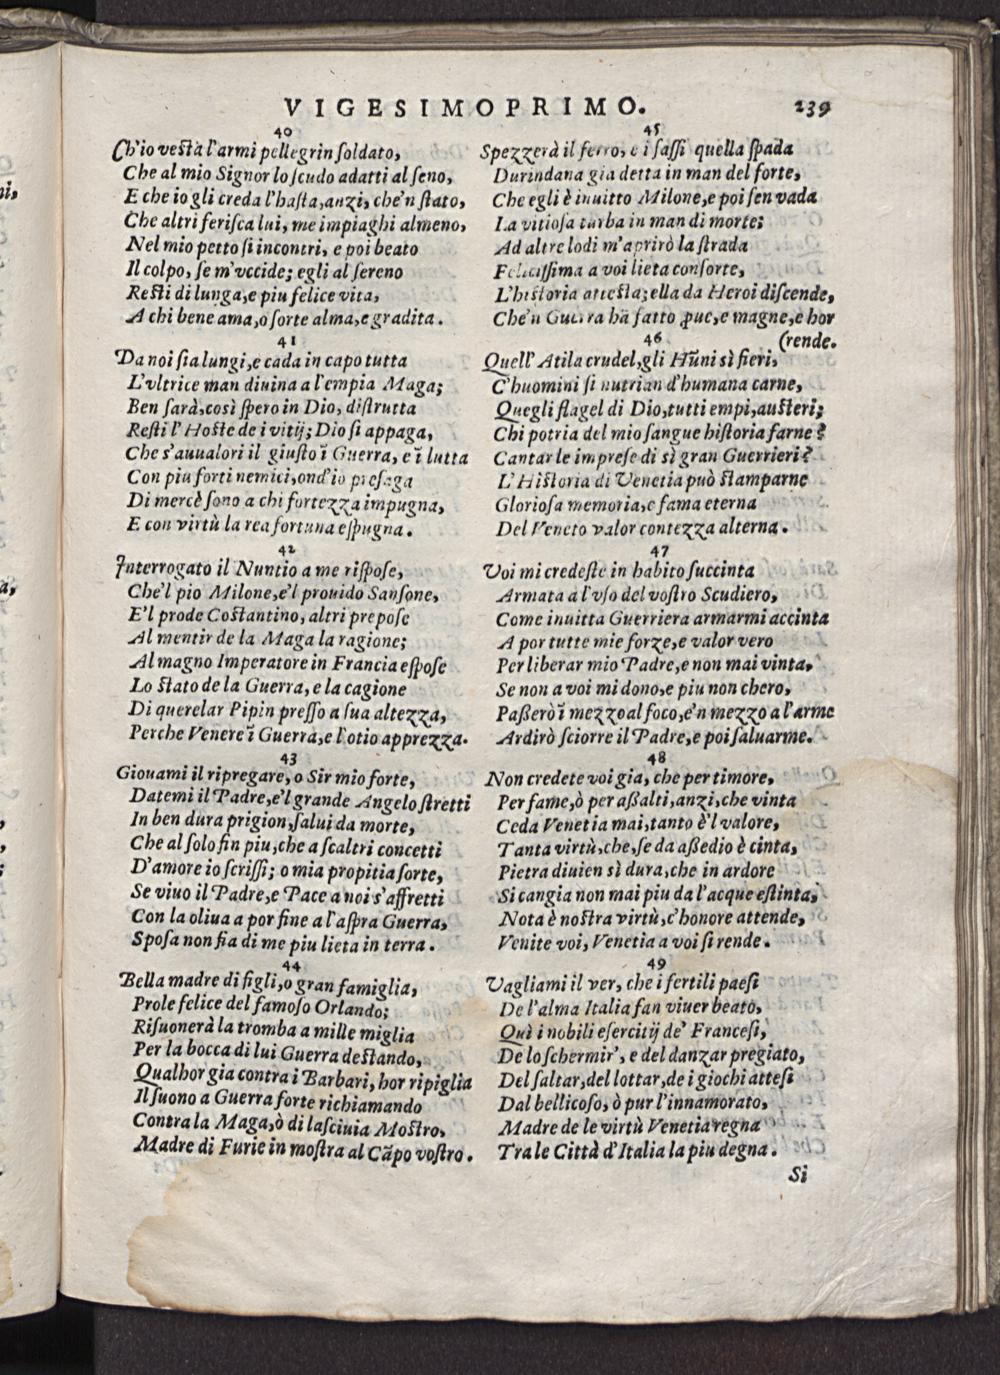 VIGESIMOPRIMO. 239
40
Ch'io vesta l'armi pellegrin soldato,
Che al mio Signor lo scudo adatti al seno,
E che io gli creda l'hasta, anzi, che'n stato,
Che altri ferisca lui, me impiaghi almeno,
Nel mio petto si incontri, e poi beato
Il colpo, se m'vccide; egli al sereno
Resti di lunga, e piu felice vita,
A chi bene ama, o sorte alma, e gradita.
41
Da noi sia lungi, e cada in capo tutta
L'vltrice man diuina a l'empia Maga;
Ben sarà, così spero in Dio, distrutta
Resti l'Hoste de i vitij; Dio si appaga,
Che s'auualori il giusto ĩ Guerra, e ĩ lutta
Con piu forti nemici, ond'io presaga
Di mercè sono a chi fortezza impugna,
E con virtù la rea fortuna espugna.
42
Interrogato il Nuntio a me rispose,
Che'l pio Milone, e'l prouido Sansone,
E'l prode Costantino, altri prepose
Al mentir de la Maga la ragione;
Al magno Imperatore in Francia espose
Lo stato de la Guerra, e la cagione
Di querelar Pipin presso a sua altezza,
Perche Venere ĩ Guerra, e l'otio apprezza.
43
Giouami il ripregare, o Sir mio forte,
Datemi il Padre, e'l grande Angelo stretti
In ben dura prigion, salui da morte,
Che al solo fin piu, che a scaltri concetti
D'amore io scrissi; o mia propitia sorte,
Se viuo il Padre, e Pace a noi s'affretti
Con la oliua a por fine a l'aspra Guerra,
Sposa non fia di me piu lieta in terra.
44
Bella madre di figli, o gran famiglia,
Prole felice del famoso Orlando;
Risuonerà la tromba a mille miglia
Per la bocca di lui Guerra destando,
Qualhor gia contra i Barbari, hor ripiglia
Il suono a Guerra forte richiamando
Contra la Maga, ò di lasciuia Mostro,
Madre di Furie in mostra al Cãpo vostro.
45
Spezzerà il ferro, e i sassi quella spada
Durindana gia detta in man del forte,
Che egli è inuitto Milone, e poi sen vada
La vitiosa turba in man di morte;
Ad altre lodi m'aprirò la strada
Felicissima a voi lieta consorte,
L'historia attesta; ella da Heroi discende,
Che'n Guerra hã fatto ꝓue, e magne, e hor
(rende.
46
Quell' Atila crudel, gli Hũni sì fieri,
C'huomini si nutrian d'humana carne,
Quegli flagel di Dio, tutti empi, austeri;
Chi potria del mio sangue historia farne?
Cantar le imprese di sì gran Guerrieri?
L'Historia di Venetia può stamparne
Gloriosa memoria, e fama eterna
Del Veneto valor contezza alterna.
47
Voi mi credeste in habito succinta
Armata a l'vso del vostro Scudiero,
Come inuitta Guerriera armarmi accinta
A por tutte mie forze, e valor vero
Per liberar mio Padre, e non mai vinta,
Se non a voi mi dono, e piu non chero,
Paßerò ĩ mezzo al foco, e'n mezzo a l'arme
Ardirò sciorre il Padre, e poi saluarme.
48
Non credete voi gia, che per timore,
Per fame, ò per aßalti, anzi, che vinta
Ceda Venetia mai, tanto è'l valore,
Tanta virtù, che, se da aßedio è cinta,
Pietra diuien sì dura, che in ardore
Si cangia non mai piu da l'acque estinta,
Nota è nostra virtù, c'honore attende,
Venite voi, Venetia a voi si rende.
49
Vagliami il ver, che i fertili paesi
De l'alma Italia fan viuer beato,
Quì i nobili esercitij de' Francesi,
De lo schermir', e del danzar pregiato,
Del saltar, del lottar, de i giochi attesi
Dal bellicoso, ò pur l'innamorato,
Madre de le virtù Venetia regna
Tra le Città d'Italia la piu degna.
Si